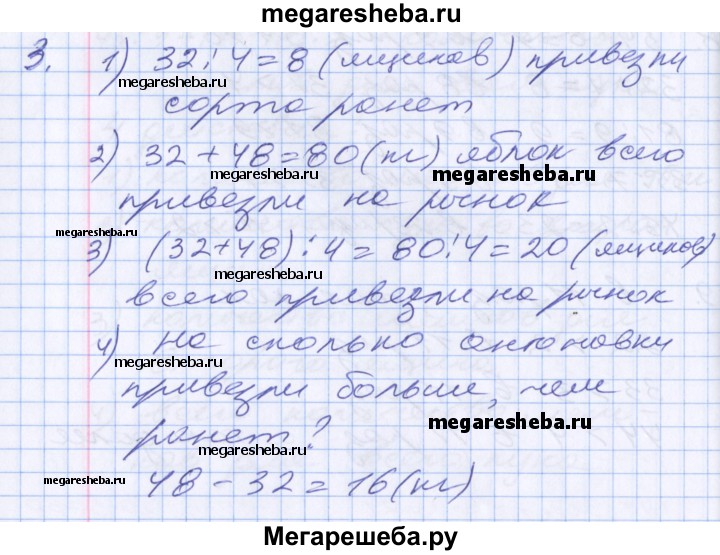 megaresheba.ru
3. 1) 32:4=8 (ящиков) привезли
megaresheba.ru
сорта ранет
2) 32+48=80(кг) яблок всего
megaresheba.ru
megaresheba.ru
привезли на рынок
megaresheba.ru
3) (32+48):4=80:4=20 (ящиков)
megaresheba.ru
всего привезли на рынок
4) На сколько антоновки
megaresheba.ru
привезли больше, чем
megaresheba.ru
ранет?
megaresheba.ru
megaresheba.ru
48-32=16(кг)
Мегарешеба.ру